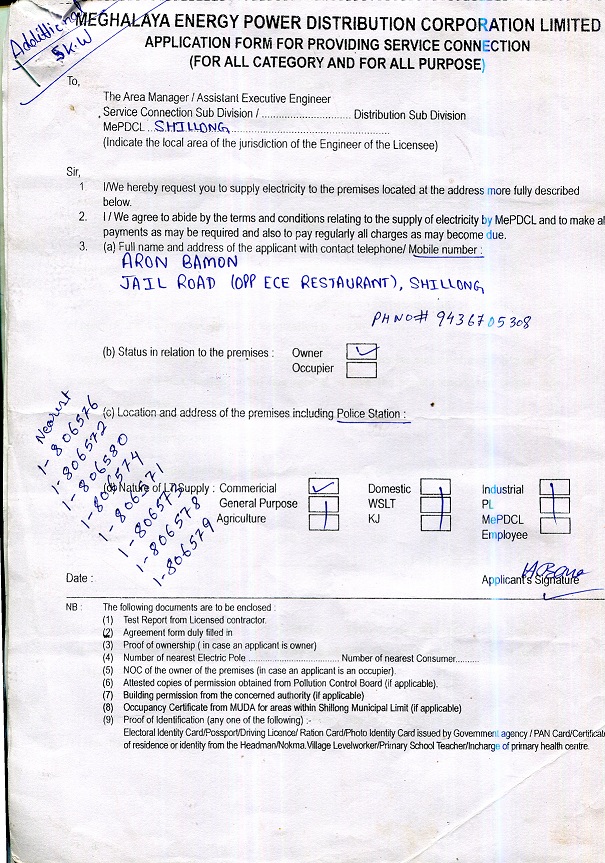 Additional
5K.W
MEGHALAYA ENERGY POWER DISTRIBUTION CORPORATION LIMITED
APPLICATION FORM FOR PROVIDING SERVICE CONNECTION
(FOR ALL CATEGORY AND FOR ALL PURPOSE)
To,
The Area Manager / Assistant Executive Engineer
Service Connection Sub Division / .............................. Distribution Sub Division
MePDCL .. SHILLONG ......................................................
(Indicate the local area of the jurisdiction of the Engineer of the Licensee)
Sir,
1 I/We hereby request you to supply electricity to the premises located at the address more fully described
below.
2. I / We agree to abide by the terms and conditions relating to the supply of electricity by MePDCL and to make al
payments as may be required and also to pay regularly all charges as may become due.
3. (a) Full name and address of the applicant with contact telephone/ Mobile number :
ARON BAMON
JAIL ROAD (OPP ECE RESTAURANT), SHILLONG
PH NO# 9436705308
(b) Status in relation to the premises : Owner ✓
Occupier
(c) Location and address of the premises including Police Station :
Nearest
1-806576
1-806572
1-806580
1-806574
1-806571
1-806573
1-806578
1-806579
(d) Nature of LT Supply : Commericial ✓ Domestic Industrial
General Purpose WSLT PL
Agriculture KJ MePDCL
Employee
Date :
Applicant's Signature
NB : The following documents are to be enclosed :
(1) Test Report from Licensed contractor.
(2) Agreement form duly filled in
(3) Proof of ownership ( in case an applicant is owner)
(4) Number of nearest Electric Pole .................................. Number of nearest Consumer.........
(5) NOC of the owner of the premises (in case an applicant is an occupier).
(6) Attested copies of permission obtained from Pollution Control Board (if applicable).
(7) Building permission from the concerned authority (if applicable)
(8) Occupancy Certificate from MUDA for areas within Shillong Municipal Limit (if applicable)
(9) Proof of Identification (any one of the following) :-
Electoral Identity Card/Possport/Driving Licence/ Ration Card/Photo Identity Card issued by Government agency / PAN Card/Certificate
of residence or identity from the Headman/Nokma.Village Levelworker/Primary School Teacher/Incharge of primary health centre.